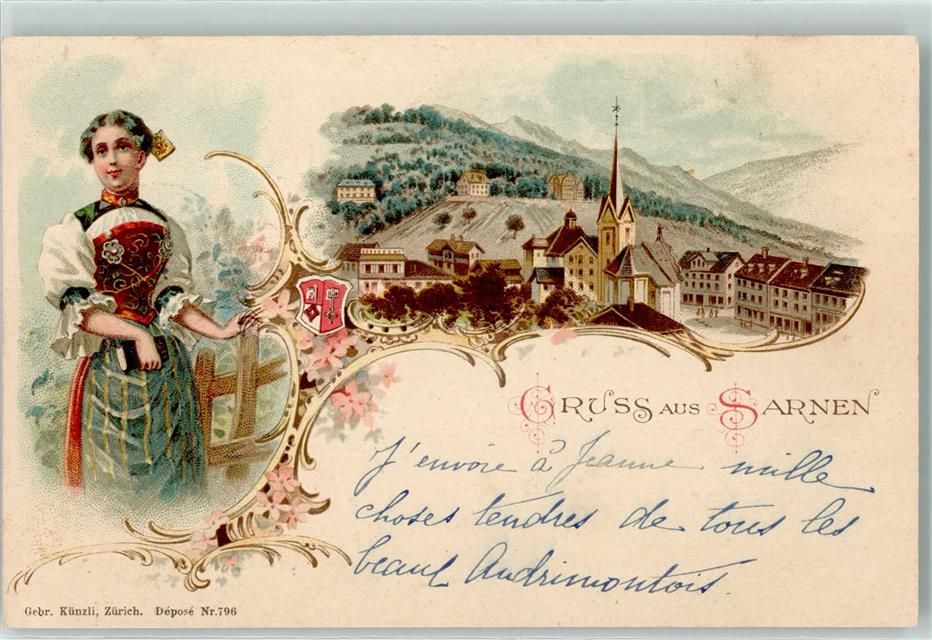 GRUSS AUS SARNEN
J'envoie à Jeanne mille
choses tendres de tous les
beaux Andrimontois.
Gebr. Künzli, Zürich. Déposé Nr.796